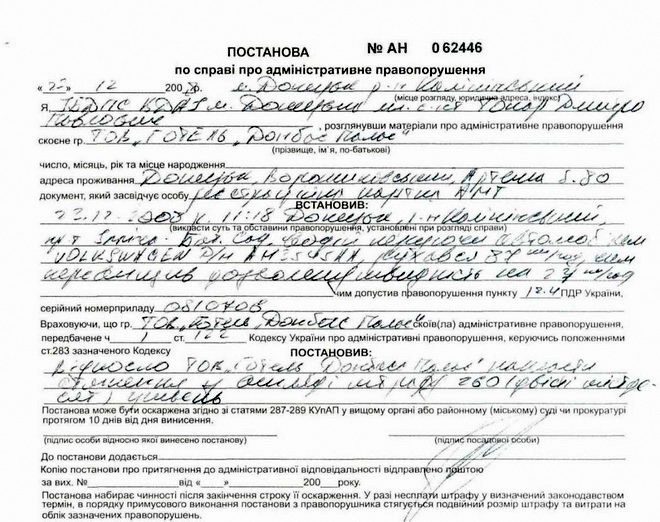 ПОСТАНОВА № АН 062446
по справі про адміністративне правопорушення
12 200 м. Донецьк р-н Калінінський
(місце розгляду, юридична адреса, індекс)
Я, м. Дмитро
Павлович розглянувши матеріали про адміністративне правопорушення
скоєне гр. ТОВ "ГОТЕЛЬ "Донбас Палас"
(прізвище, ім'я, по-батькові)
число, місяць, рік та місце народження
адреса проживання Донецьк, Ворошиловський, Артема 80
документ, який засвідчує особу реєстраційна картка АМТ
ВСТАНОВИВ:
23.12.2008 р. 11:18 Донецьк, р-н Калінінський,
(викласти суть та обставини правопорушення, установлені при розгляді справи)
пр-т Ілліча - Бот. Сад, водій керуючи автомобілем
VOLKSWAGEN D/H рухався 87 км/год, чим
перевищив дозволену швидкість на 27 км/год
чим допустив правопорушення пункту 12.4 ПДР України,
серійний номерприладу 0810708
Враховуючи, що гр. ТОВ "Готель "Донбас Палас" скоїв(ла) адміністративне правопорушення,
передбачене ч 1 ст. 122 Кодексу України про адміністративні правопорушення, керуючись положеннями
ст.283 зазначеного Кодексу
ПОСТАНОВИВ:
Відносно ТОВ "Готель "Донбас Палас" накласти
стягнення у вигляді штрафу 260 (двісті
) гривень
Постанова може бути оскаржена згідно зі статями 287-289 КУпАП у вищому органі або районному (міському) суді чи прокуратурі
протягом 10 днів від дня винесення.
(підпис особи відносно якої винесено постанову) (підпис посадової особи)
До постанови додається
Копію постанови про притягнення до адміністративної відповідальності відправлено поштою
за вих. № від « » 200 року.
Постанова набирає чинності після закінчення строку її оскарження. У разі несплати штрафу у визначений законодавством
термін, в порядку примусового виконання постанови з правопорушника стягується подвійний розмір штрафу та витрати на
облік зазначених правопорушень.